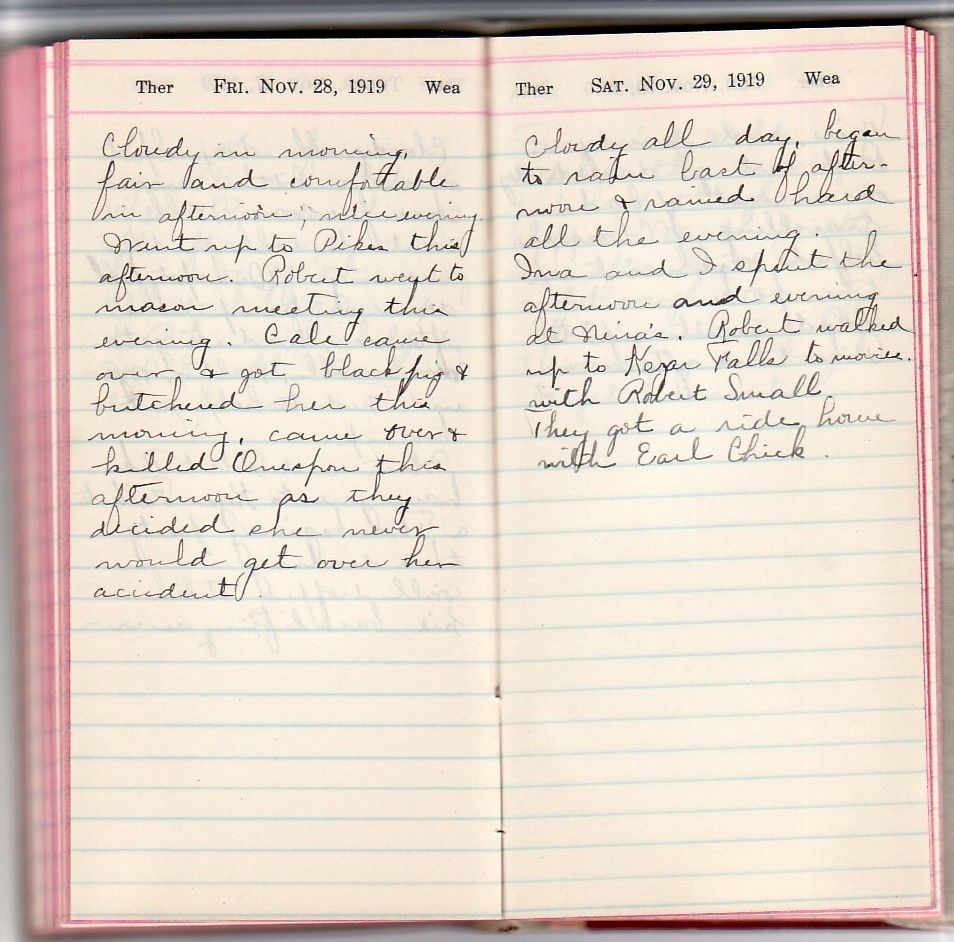 Ther FRI. NOV. 28, 1919 Wea
Cloudy in morning,
fair and comfortable
in afternoon, nice evening.
Went up to Pikes this
afternoon. Robert went to
mason meeting this
evening. Cale came
over & got black pig &
butchered her this
morning, came over &
killed this
afternoon as they
decided she never
would get over her
accident.
Ther SAT. NOV. 29, 1919 Wea
Cloudy all day, began
to rain last of after-
noon & rained hard
all the evening.
Ina and I spent the
afternoon and evening
at Nina's. Robert walked
up to Kezar Falls to movies.
with Robert Small
They got a ride home
with Earl Chick.